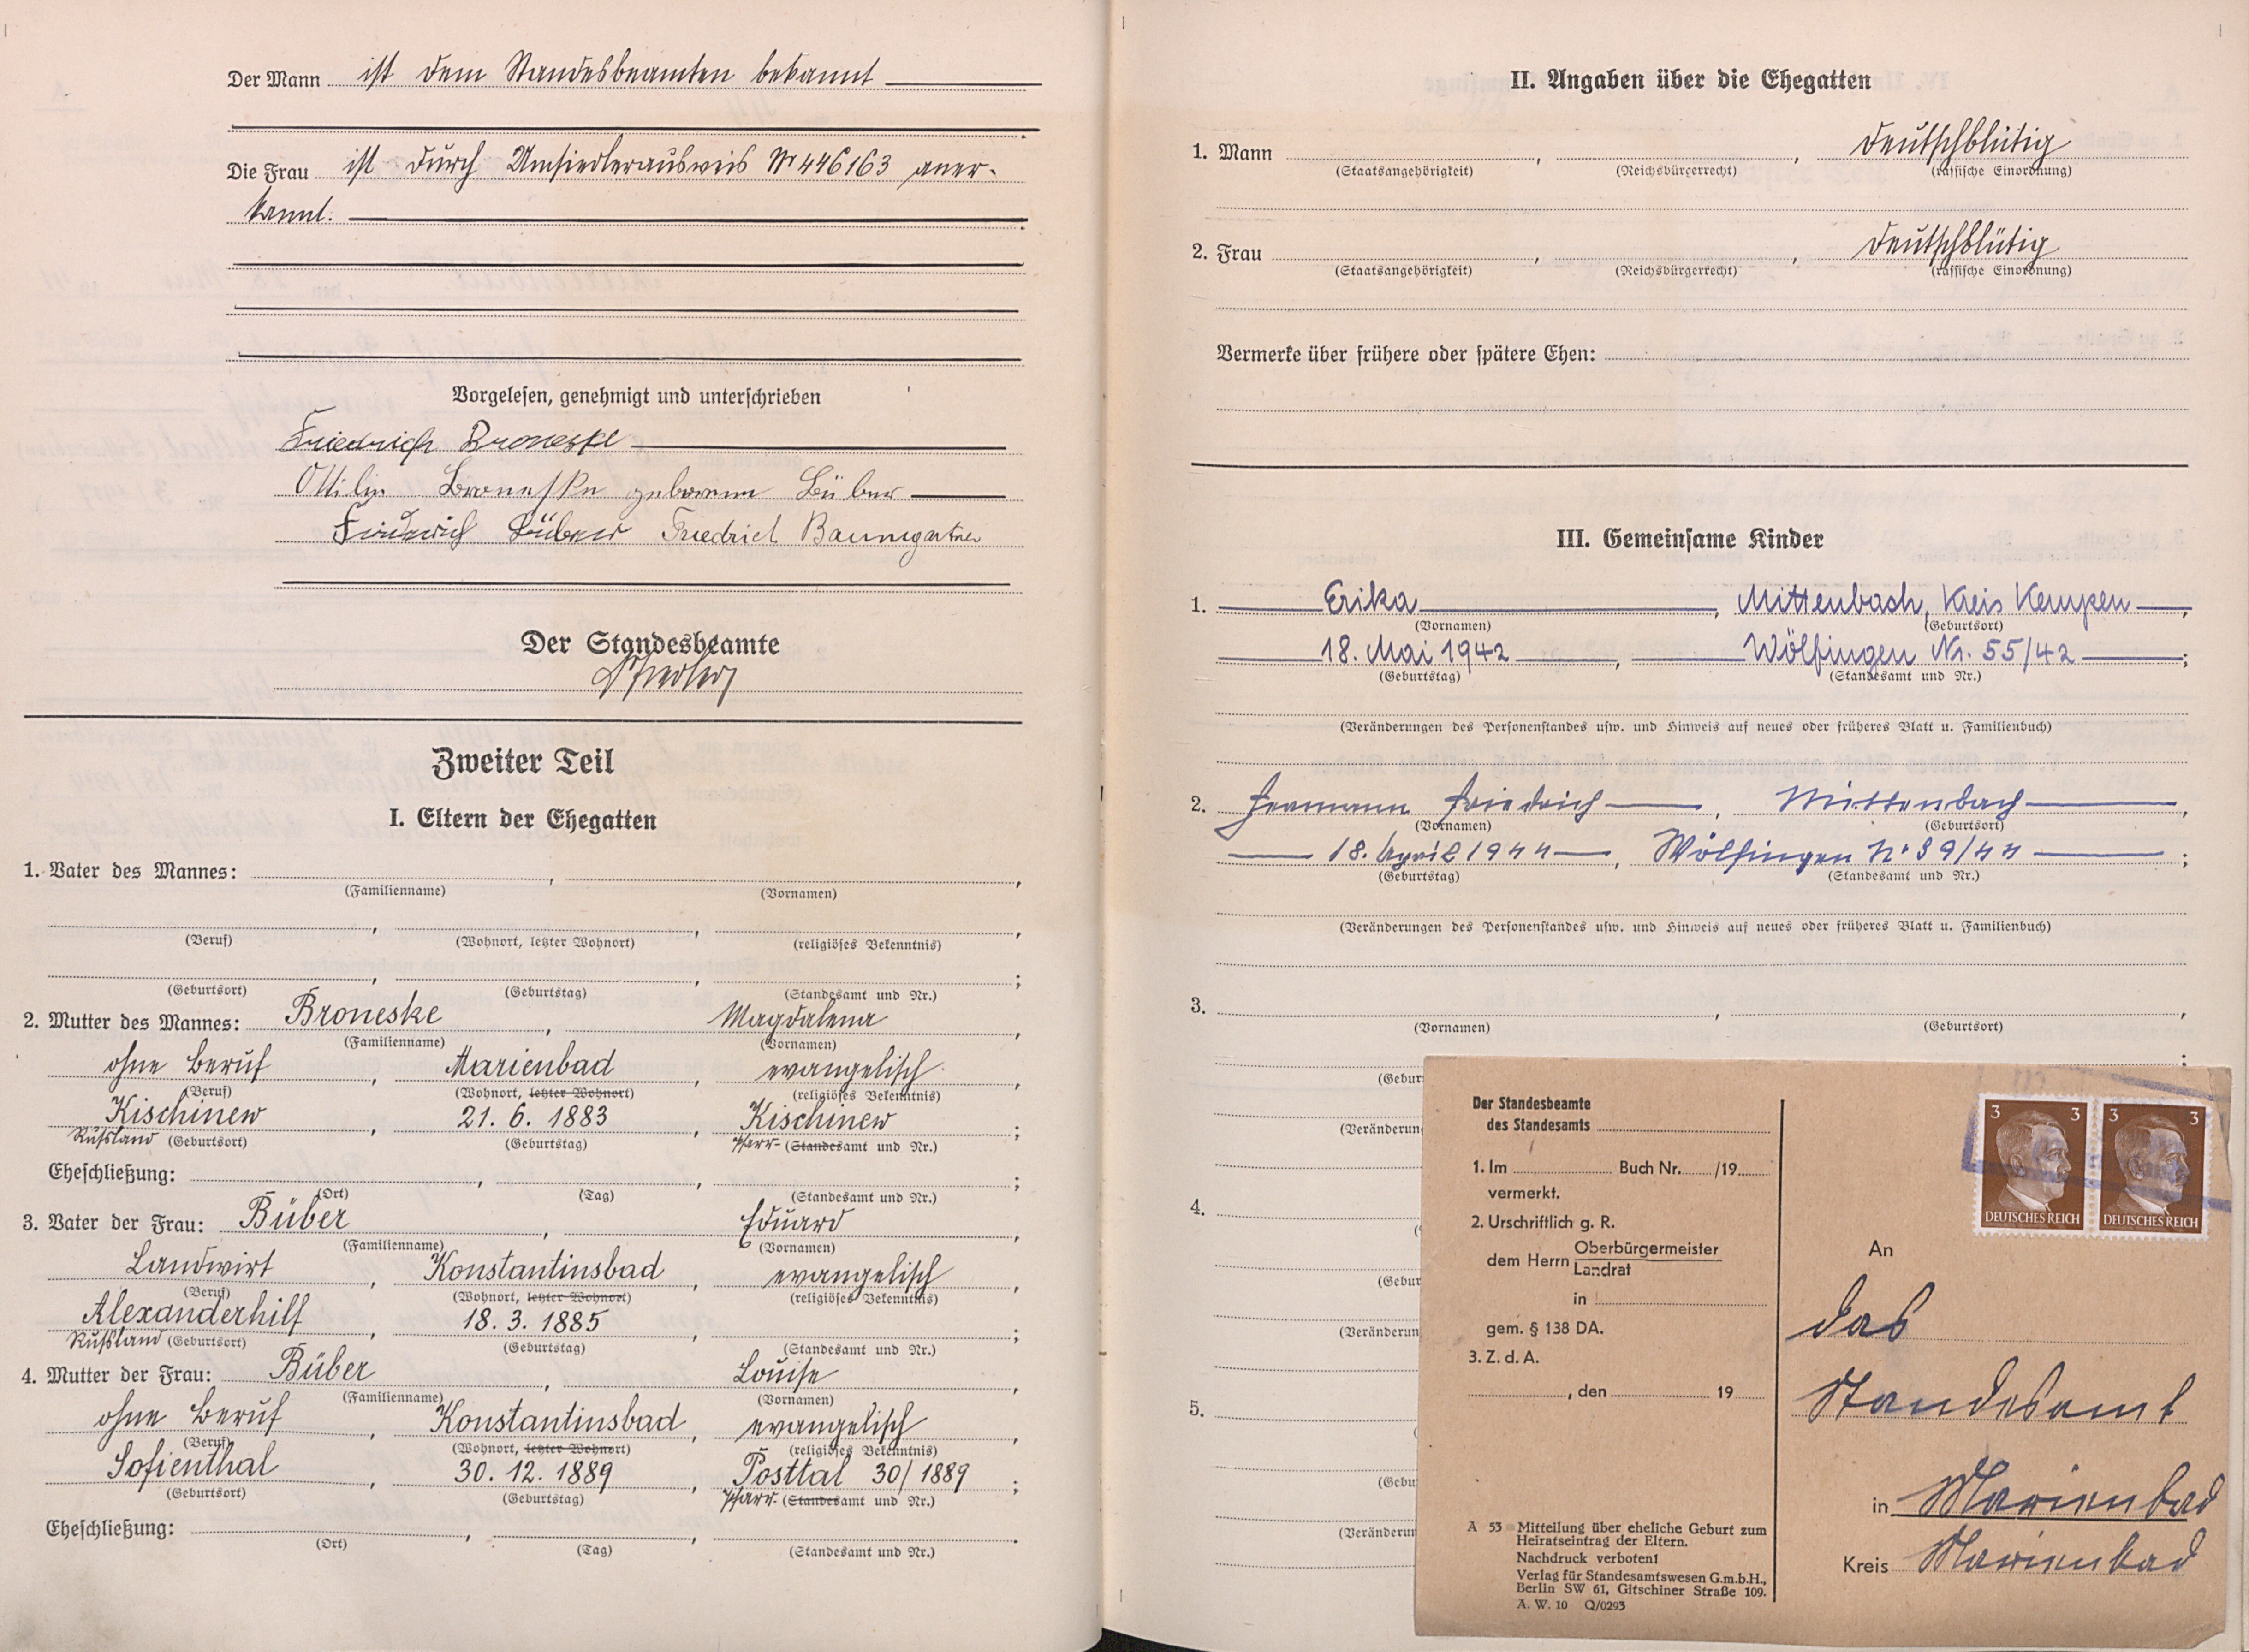 Der Mann ist dem Standesbeamten bekannt
Die Frau ist durch Umsiedlerausweis № 446163 aner-
kannt.
Vorgelesen, genehmigt und unterschrieben
Friedrich Broneske
Ottilie Broneske geborene Büber
Friedrich Büber Friedrich Baumgartner
Der Standesbeamte
Zweiter Teil
I. Eltern der Ehegatten
1. Vater des Mannes: , ,
(Familienname) (Vornamen)
, , ,
(Beruf) (Wohnort, letzter Wohnort) (religiöses Bekenntnis)
, , ;
(Geburtsort) (Geburtstag) (Standesamt und Nr.)
2. Mutter des Mannes: Broneske , Magdalena ,
(Familienname) (Vornamen)
ohne Beruf , Marienbad , evangelisch ,
(Beruf) (Wohnort, letzter Wohnort) (religiöses Bekenntnis)
Kischinew , 21. 6. 1883 , Kischinew ;
Rußland (Geburtsort) (Geburtstag) Pfarr- (Standesamt und Nr.)
Eheschließung: , , ;
(Ort) (Tag) (Standesamt und Nr.)
3. Vater der Frau: Büber , Eduard ,
(Familienname) (Vornamen)
Landwirt , Konstantinsbad , evangelisch ,
(Beruf) (Wohnort, letzter Wohnort) (religiöses Bekenntnis)
Alexanderhilf , 18. 3. 1885 , ;
Rußland (Geburtsort) (Geburtstag) (Standesamt und Nr.)
4. Mutter der Frau: Büber , Louise ,
(Familienname) (Vornamen)
ohne Beruf , Konstantinsbad , evangelisch ,
(Beruf) (Wohnort, letzter Wohnort) (religiöses Bekenntnis)
Sofienthal , 30. 12. 1889 , Posttal 30/1889 ;
(Geburtsort) (Geburtstag) Pfarr- (Standesamt und Nr.)
Eheschließung: , , .
(Ort) (Tag) (Standesamt und Nr.)
II. Angaben über die Ehegatten
1. Mann , , deutschblütig
(Staatsangehörigkeit) (Reichsbürgerrecht) (rassische Einordnung)
2. Frau , , deutschblütig
(Staatsangehörigkeit) (Reichsbürgerrecht) (rassische Einordnung)
Vermerke über frühere oder spätere Ehen:
III. Gemeinsame Kinder
1. Erika , Mittenbach, Kreis Kempen ,
(Vornamen) (Geburtsort)
18. Mai 1942 , Wölfingen Nr. 55/42 ;
(Geburtstag) (Standesamt und Nr.)
(Veränderungen des Personenstandes usw. und Hinweis auf neues oder früheres Blatt u. Familienbuch)
2. Hermann Friedrich , Mittenbach ,
(Vornamen) (Geburtsort)
18. April 1944 , Wölfingen Nr 39/44 ;
(Geburtstag) (Standesamt und Nr.)
(Veränderungen des Personenstandes usw. und Hinweis auf neues oder früheres Blatt u. Familienbuch)
3. , ,
(Vornamen) (Geburtsort)
;
(Gebur
(Veränderun
4.
(Gebur
(Veränderun
5.
(Gebu
(Veränderun
Der Standesbeamte
des Standesamts
1. Im Buch Nr. /19
vermerkt.
2. Urschriftlich g. R.
dem Herrn Oberbürgermeister
Landrat
in
gem. § 138 DA.
3. Z. d. A.
, den 19
A 53 Mitteilung über eheliche Geburt zum
Heiratseintrag der Eltern.
Nachdruck verboten!
Verlag für Standesamtswesen G.m.b.H.,
Berlin SW 61, Gitschiner Straße 109.
A. W. 10 Q/0293
3 3 3 3
DEUTSCHES REICH DEUTSCHES REICH
An
das
Standesamt
in Marienbad
Kreis Marienbad